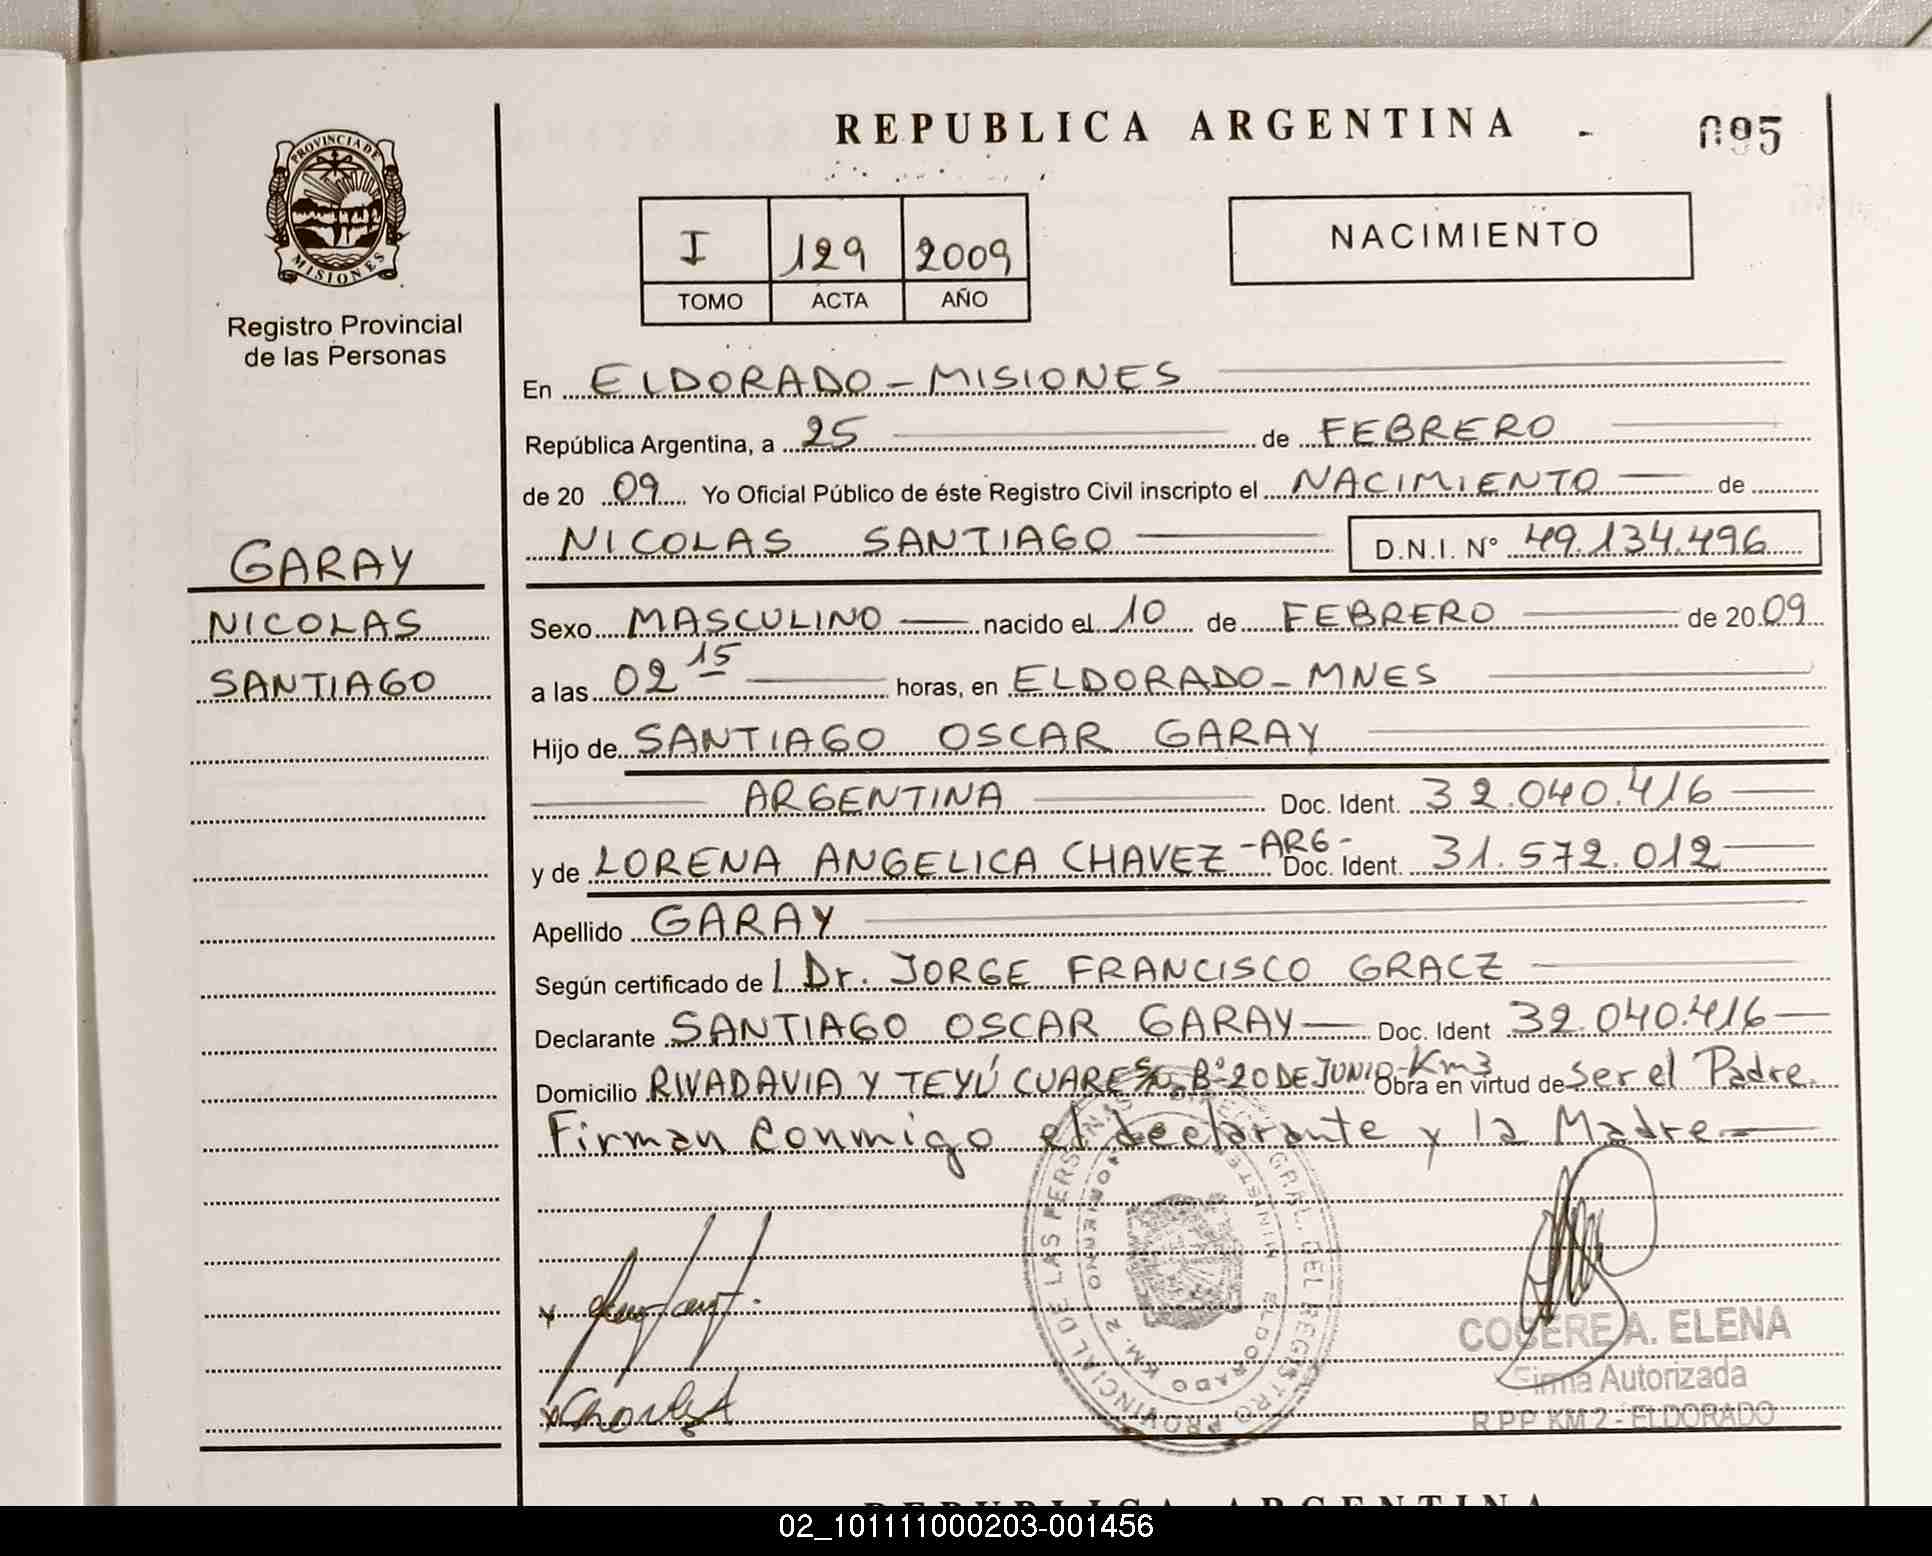 REPUBLICA ARGENTINA - 095
PROVINCIA DE
MISIONES
Registro Provincial
de las Personas
I 129 2009
TOMO ACTA AÑO
NACIMIENTO
En ELDORADO - MISIONES
República Argentina, a 25 de FEBRERO
de 20 09 Yo Oficial Público de éste Registro Civil inscripto el NACIMIENTO de
NICOLAS SANTIAGO D.N.I. N° 49.134.496
GARAY
NICOLAS
SANTIAGO
Sexo MASCULINO nacido el 10 de FEBRERO de 20 09
a las 02 15 horas, en ELDORADO - MNES
Hijo de SANTIAGO OSCAR GARAY
ARGENTINA Doc. Ident. 32.040.416
y de LORENA ANGELICA CHAVEZ - ARG - Doc. Ident. 31.572.012
Apellido GARAY
Según certificado de l Dr. JORGE FRANCISCO GRACZ
Declarante SANTIAGO OSCAR GARAY Doc. Ident 32.040.416
Domicilio RIVADAVIA Y TEYÚ CUARE S/N B° 20 DE JUNIO - Km3 Obra en virtud de ser el Padre.
Firman conmigo el declarante y la Madre
REGISTRO PROVINCIAL DE LAS PERSONAS
ELDORADO KM. 2
COSERE A. ELENA
Firma Autorizada
R.P.P KM 2 - ELDORADO
REPUBLICA ARGENTINA
02_101111000203-001456